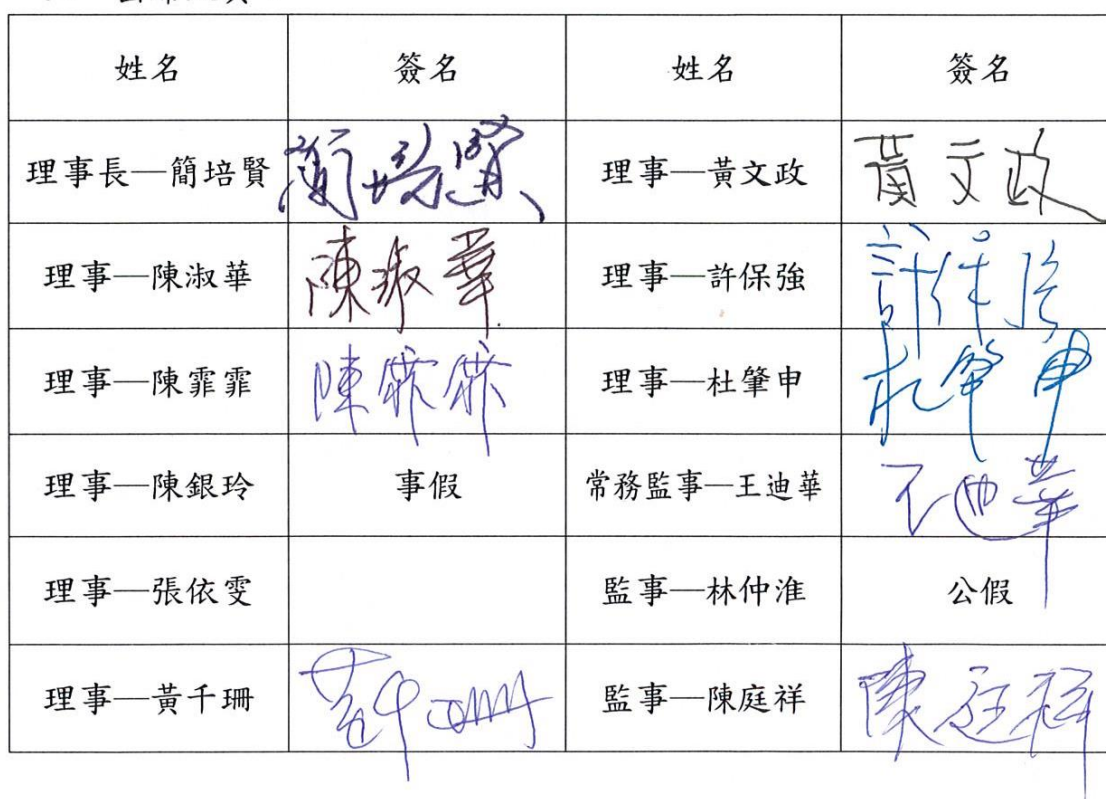 姓名 簽名 姓名 簽名
理事長—簡培賢 簡培賢 理事—黃文政 黃文政
理事—陳淑華 陳淑華 理事—許保強 許保強
理事—陳霏霏 陳霏霏 理事—杜肇申 杜肇申
理事—陳銀玲 事假 常務監事—王迪華 王迪華
理事—張依雯 監事—林仲淮 公假
理事—黃千珊 黃千珊 監事—陳庭祥 陳庭祥